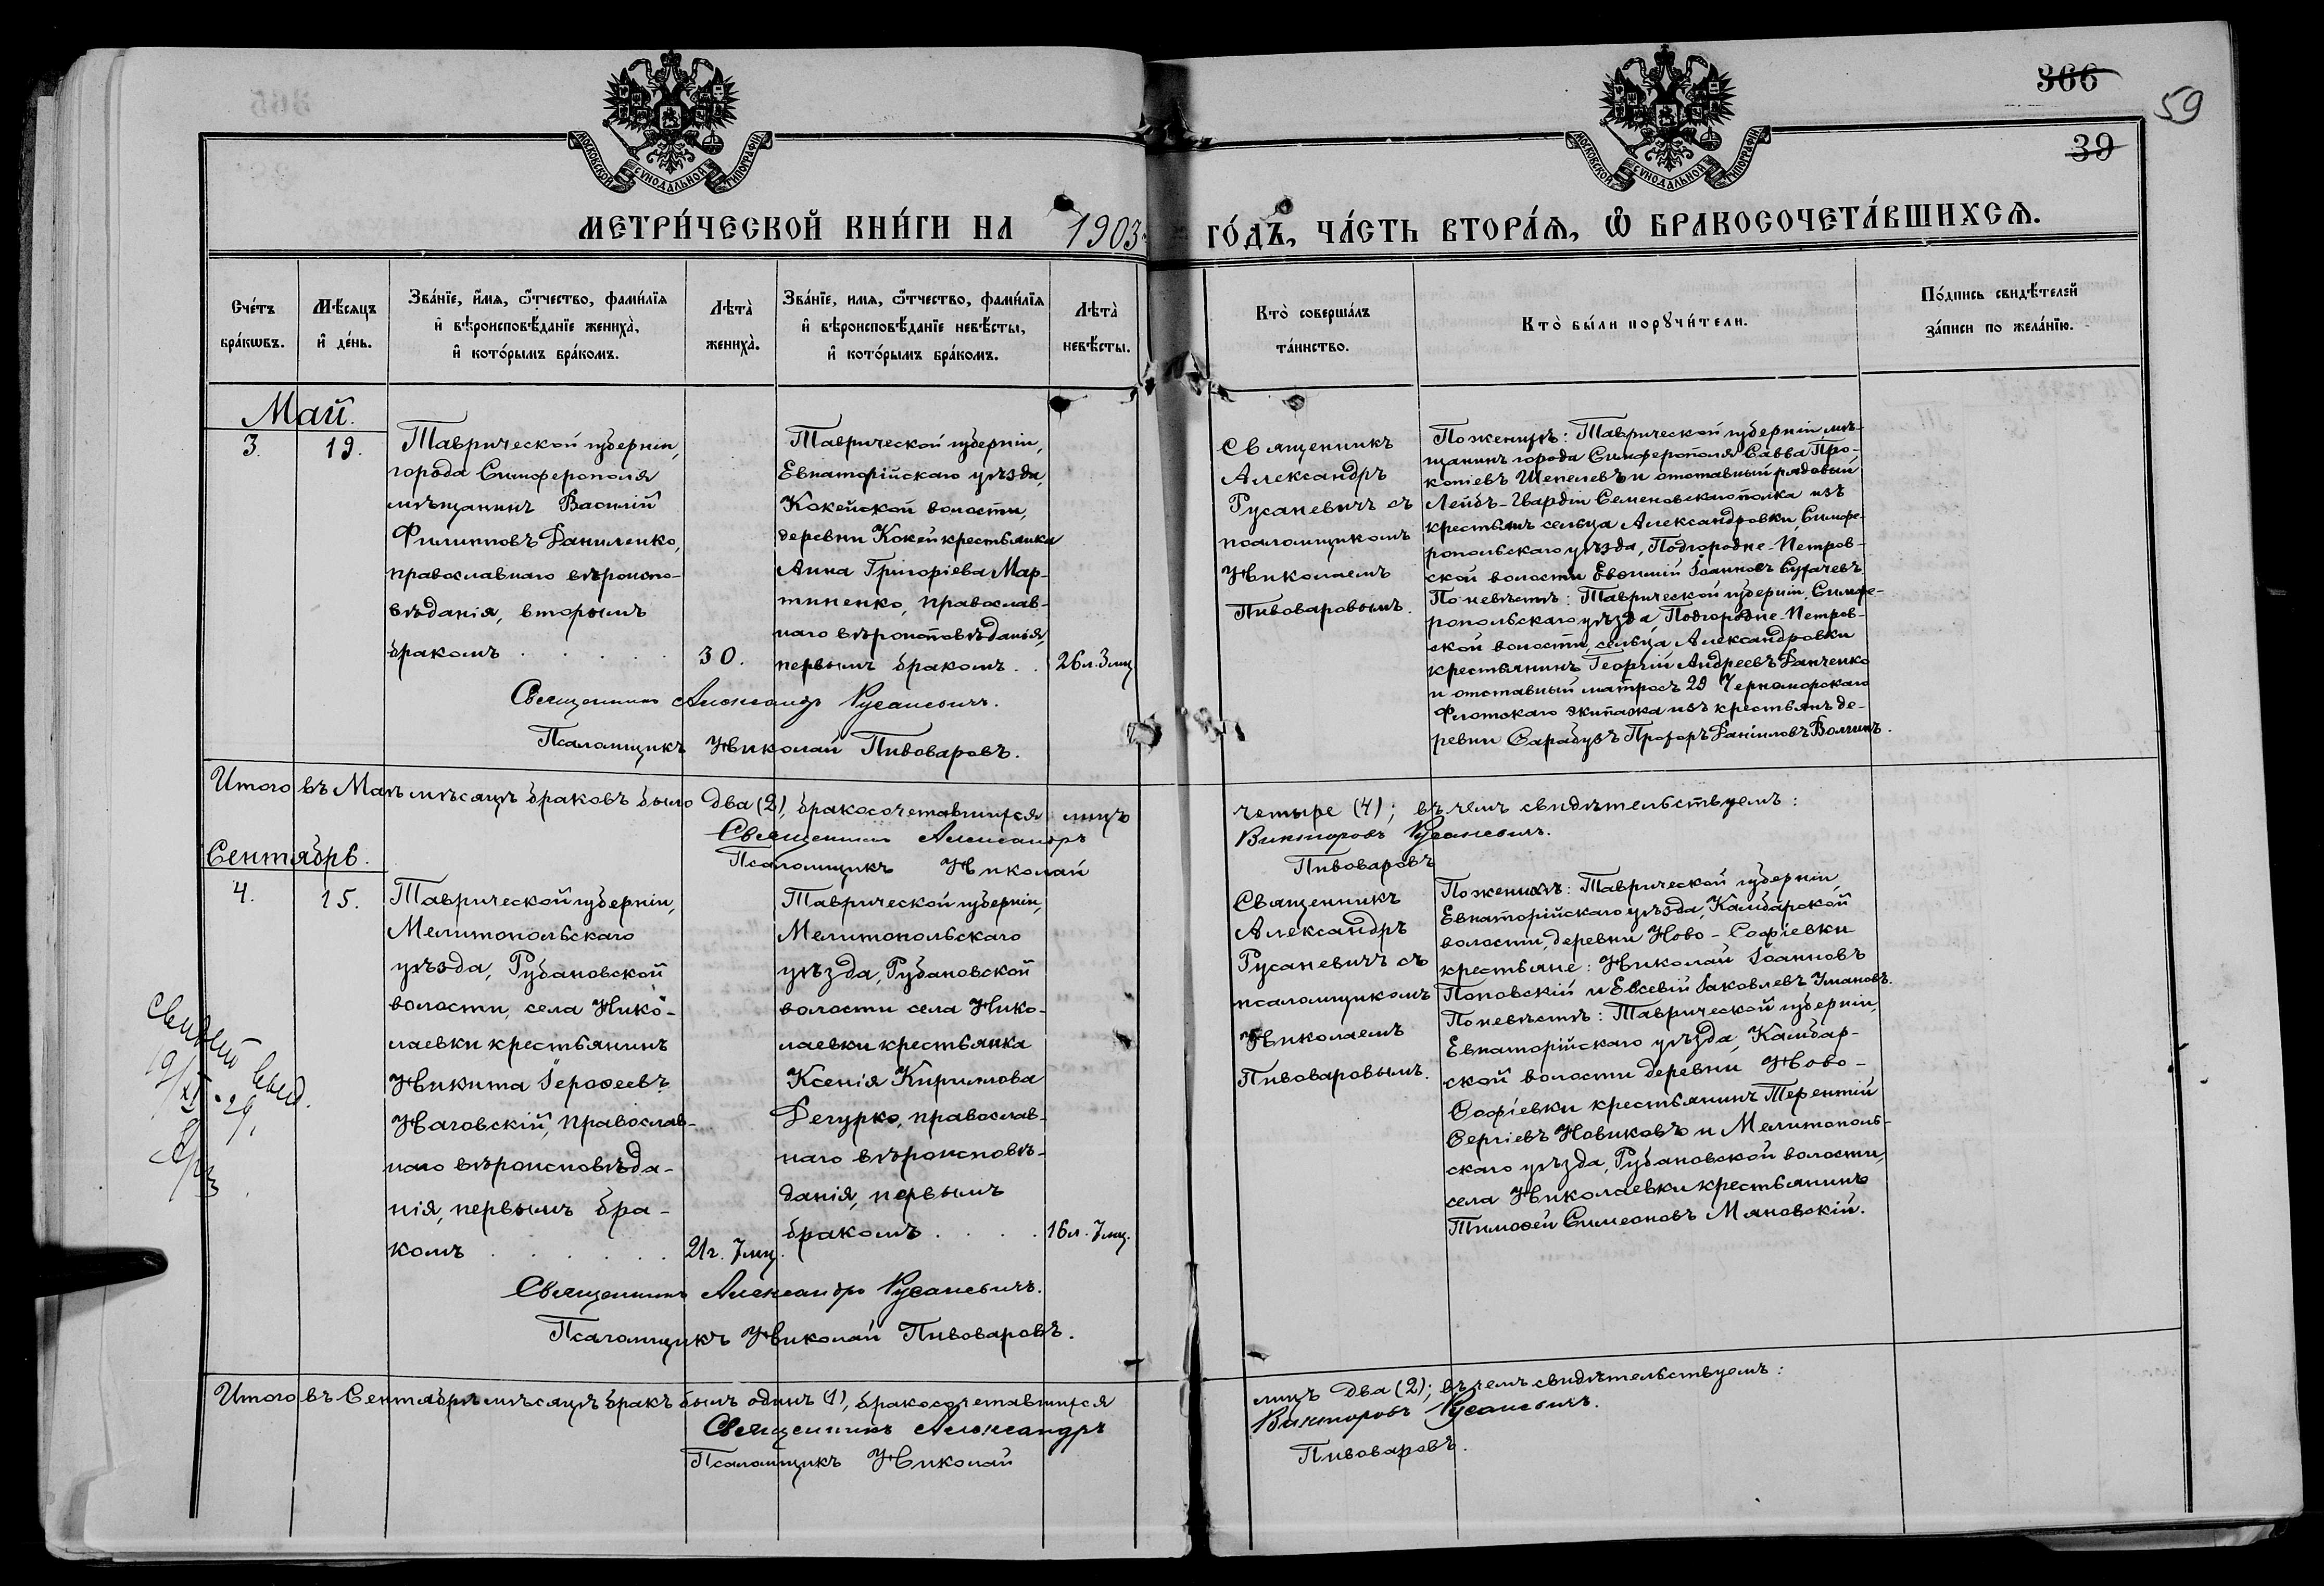 366
59
39
МОСКОВСКОЙ СѴНОДАЛЬНОЙ ТИПОГРАФІИ
МОСКОВСКОЙ СѴНОДАЛЬНОЙ ТИПОГРАФІИ
МЕТРИ́ЧЕСКОЙ КНИ́ГИ НА 1903 ГО́ДЪ, ЧА́СТЬ ВТОРА́Я, Ѡ БРАКОСОЧЕТА́ВШИХСѦ.
Сче́тъ
бра́кѡвъ.
Мѣ́сяцъ
и҆ де́нь.
Зва́нїе, и҆́мя, ѻ҆́тчество, фами́лїя
и҆ вѣроисповѣ́данїе жениха̀,
и҆ кото́рымъ бра́комъ.
Лѣта̀
жениха̀.
Зва́нїе, имя, ѻ҆́тчество, фами́лїя
и҆ вѣроисповѣ́данїе невѣ́сты,
и҆ кото́рымъ бра́комъ.
Лѣта̀
невѣ́сты.
Кто̀ соверша́лъ
та́инство.
Кто̀ бы́ли порꙋчи́тели.
По́дпись свидѣ́телей
за́писи по жела́нїю.
Май.
3.
19.
Таврической губерніи,
города Симферополя
мѣщанинъ Василій
Филипповъ Даниленко,
православнаго вѣроиспо-
вѣданія, вторымъ
бракомъ . . . . .
30.
Таврической губерніи,
Евпаторійскаго уѣзда,
Кокейской волости,
деревни Кокей крестьянка
Анна Григоріева Мар-
тиненко, православ-
наго вѣроисповѣданія,
первымъ бракомъ . .
26 л. 3 мц
Священникъ
Александръ
Русаневичъ съ
псаломщикомъ
Николаемъ
Пивоваровымъ.
По женихѣ: Таврической губерніи, мѣ-
щанинъ города Симферополя Савва Про-
копіевъ Шепелевъ и отставный рядовый
Лейбъ-Гвардіи Семеновскаго полка изъ
крестьянъ сельца Александровки, Симфе-
ропольскаго уѣзда, Подгородне-Петров-
ской волости Евѳимій Іоанновъ Сугачевъ.
По невѣстѣ: Таврической губерніи, Симфе-
ропольскаго уѣзда, Подгородне-Петров-
ской волости, сельца Александровки
крестьянинъ Георгій Андреевъ Данченко
и отставный матросъ 29 Черноморскаго
Флотскаго экипажа изъ крестьянъ де-
ревни Сарабузъ Прохоръ Даніиловъ Волчинъ.
Священникъ Александръ Русаневичъ.
Псаломщикъ Николай Пивоваровъ.
Итого въ Маѣ мѣсяцѣ браковъ было два (2), бракосочетавшихся лицъ четыре (4); въ чемъ свидѣтельствуемъ:
Священникъ Александръ Викторовъ Русаневичъ.
Псаломщикъ Николай Пивоваровъ
Сентябрь.
4.
15.
Таврической губерніи,
Мелитопольскаго
уѣзда, Рубановской
волости, села Нико-
лаевки крестьянинъ
Никита Іероѳеевъ
Наговскій, православ-
наго вѣроисповѣда-
нія, первымъ бра-
комъ . . . . . .
21 г. 7 мц.
Таврической губерніи,
Мелитопольскаго
уѣзда, Рубановской
волости села Нико-
лаевки крестьянка
Ксенія Кириллова
Дегурко, православ-
наго вѣроисповѣ-
данія, первымъ
бракомъ . . . .
16 л. 7 мц.
Священникъ
Александръ
Русаневичъ съ
псаломщикомъ
Николаемъ
Пивоваровымъ.
По женихѣ: Таврической губерніи,
Евпаторійскаго уѣзда, Камбарской
волости, деревни Ново-Софіевки
крестьяне: Николай Іоанновъ
Поповскій и Евсевій Іаковлевъ Умановъ.
По невѣстѣ: Таврической губерніи,
Евпаторійскаго уѣзда, Камбар-
ской волости деревни Ново-
Софіевки крестьянинъ Терентій
Сергіевъ Новиковъ и Мелитополь-
скаго уѣзда, Рубановской волости,
села Николаевки крестьянинъ
Тимоѳей Симеоновъ Мяновскій.
Священникъ Александръ Русаневичъ.
Псаломщикъ Николай Пивоваровъ.
Итого въ Сентябрѣ мѣсяцѣ бракъ былъ одинъ (1), бракосочетавшихся лицъ два (2); въ чемъ свидѣтельствуемъ:
Священникъ Александръ Викторовъ Русаневичъ.
Псаломщикъ Николай Пивоваровъ.